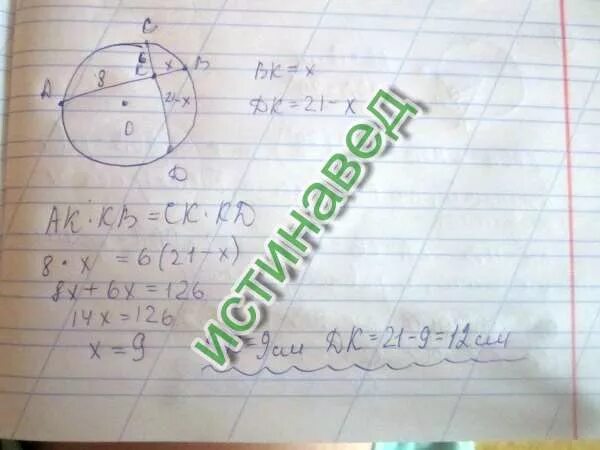 C
6
K
x
B
8
A
21-x
O
D
BK = x
DK = 21 - x
AK · KB = CK · KD
8 · x = 6 (21 - x)
8x + 6x = 126
14x = 126
x = 9
= 9 см DK = 21 - 9 = 12 см
истинавед